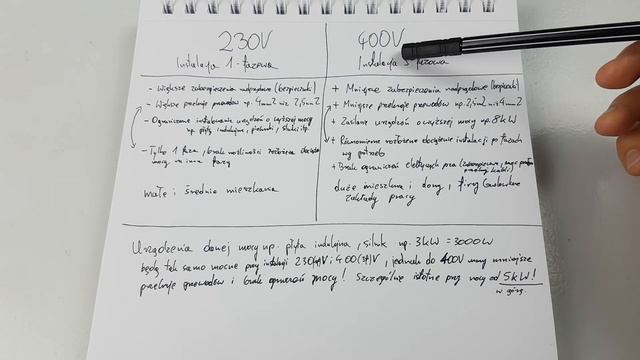 230V
Instalacja 1-fazowa
- Większe zabezpieczenia nadprądowe (bezpieczniki)
- Większe przekroje przewodów np. 4mm2 niż 2,5mm2
- Ograniczone instalowanie urządzeń o większej mocy
np. płyty indukcyjne, piekarniki, silniki, itp.
- Tylko 1 faza, brak możliwości rozłożenia
mocy na inne fazy
małe i średnie mieszkania
400V
Instalacja 3 fazowa
+ Mniejsze zabezpieczenia nadprądowe (bezpieczniki)
+ Mniejsze przekroje przewodów np. 2,5mm2 niż 4mm2
+ Zasilanie urządzeń o większej mocy np. 8kW
+ Równomierne rozłożenie obciążenia instalacji po fazach
wg potrzeb
+ Brak ograniczeń
duże mieszkania i domy, firmy
zakłady pracy
Urządzenia danej mocy np. płyta indukcyjna, silnik np. 3kW = 3000W
będą tak samo mocne przy instalacji 230V i 400V, jednak do 400V mniejsze
przekroje przewodów i brak ograniczeń mocy! Szczególnie istotne przy mocy od 5kW!
w górę.